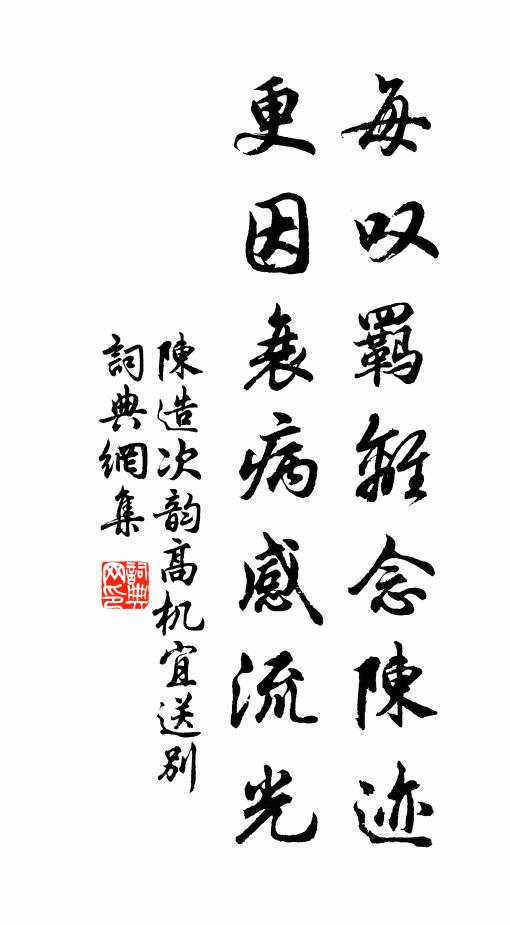 每叹羁離念陳迹
更因衰病感流光
陳造次韵高机宜送别
詞典網集
詞典网印